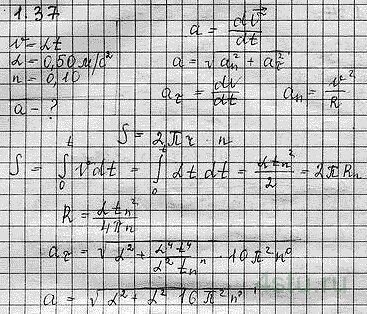 1.37
v = αt
α = 0,50 м/с²
n = 0,10
a - ?
a = dv⃗/dt
a = √a_n² + a_τ²
a_τ = dv/dt a_n = v²/R
S = 2πr · n
S = ∫₀ᵗ v dt = ∫₀ᵗ αt dt = αt_n²/2 = 2πRn
R = αt_n²/4πn
a_τ = √α² + α⁴t⁴/α²t_n ⁿ · 10π²n⁰
a = √α² + α² 16π²n⁰